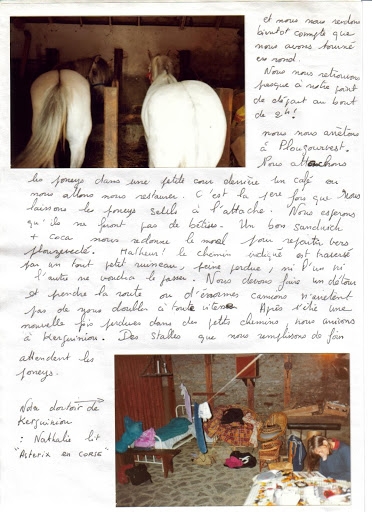 et nous nous rendons
bientôt compte que
nous avons tourné
en rond.
Nous nous retrouvons
presque à notre point
de départ au bout
de 2h!
nous nous arrêtons
à Plougourvest.
Nous attachons
les poneys dans une petite cour derrière un café où
nous allons nous restaurer. C'est la 1ere fois que nous
laissons les poneys seuls à l'attache. Nous esperons
qu'ils ne feront pas de bêtises. Un bon sandwich
+ coca nous redonne le moral pour repartir vers
Malheur! le chemin indiqué est traversé
par un tout petit ruisseau, peine perdue, ni l'un ni
l'autre ne voudra le passer. Nous devons faire un détour
et prendre la route où d'énormes camions n'arrêtent
pas de nous doubler à toute vitesse. Après s'être une
nouvelle fois perdues dans des petits chemins, nous arrivons
à Kerguiniou. Des stalles que nous remplissons de foin
attendent les
poneys.
Notre dortoir de
Kerguiniou
: Nathalie lit
"Asterix en CORSE"